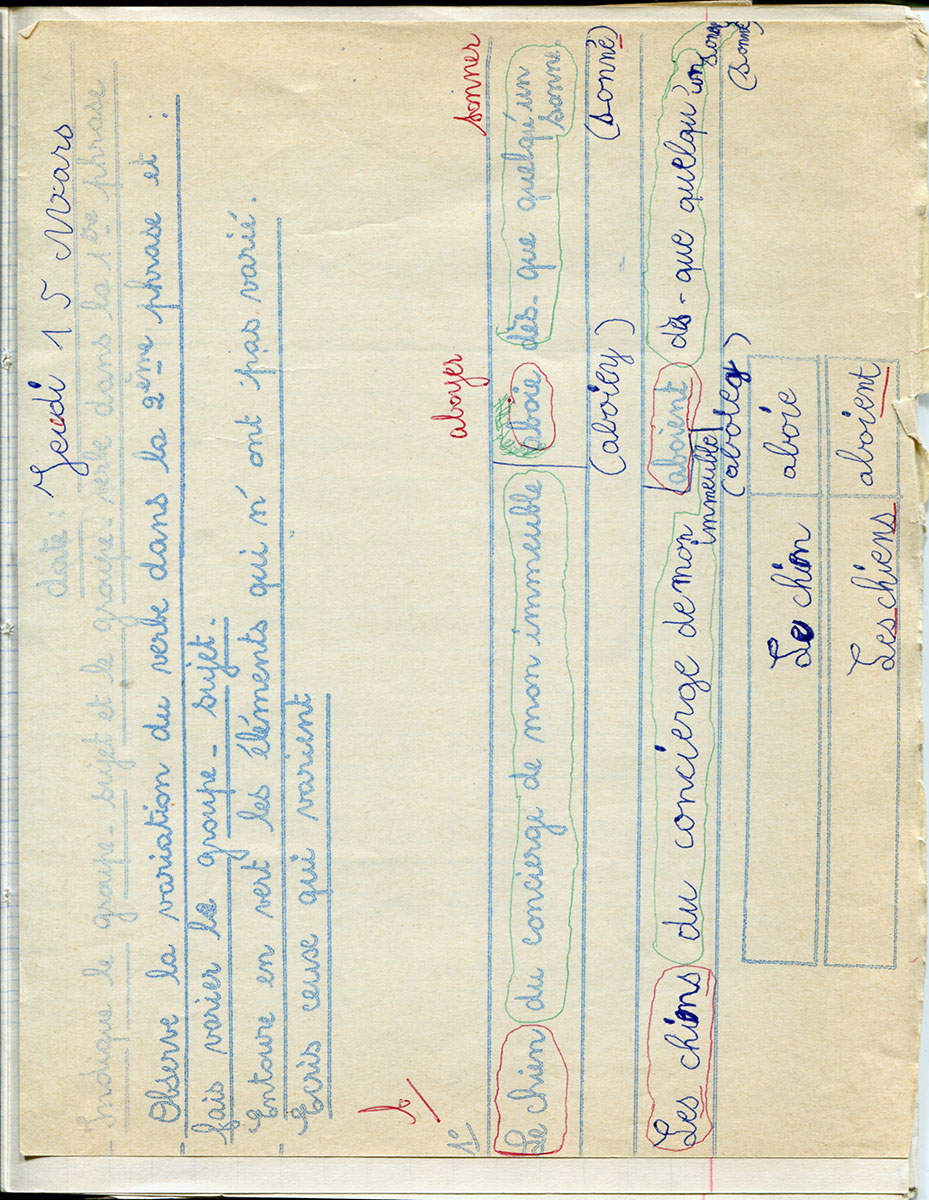 date : Jeudi 15 Mars
- Indique le groupe-sujet et le groupe-verbe dans la 1ère phrase
- Observe la variation du verbe dans la 2ème phrase et
fais varier le groupe-sujet.
- Entoure en vert les éléments qui n'ont pas varié.
- Ecris ceuse qui varient
b/
aboyer sonner
1° Le chien du concierge de mon immeuble aboie dès-que quelqu'un sonne.
(aboiey) (sonné)
Les chiens du concierge de mon immeuble aboient dès-que quelqu'un sonne
(aboiey) (sonné)
Le chien aboie
Les chiens aboient